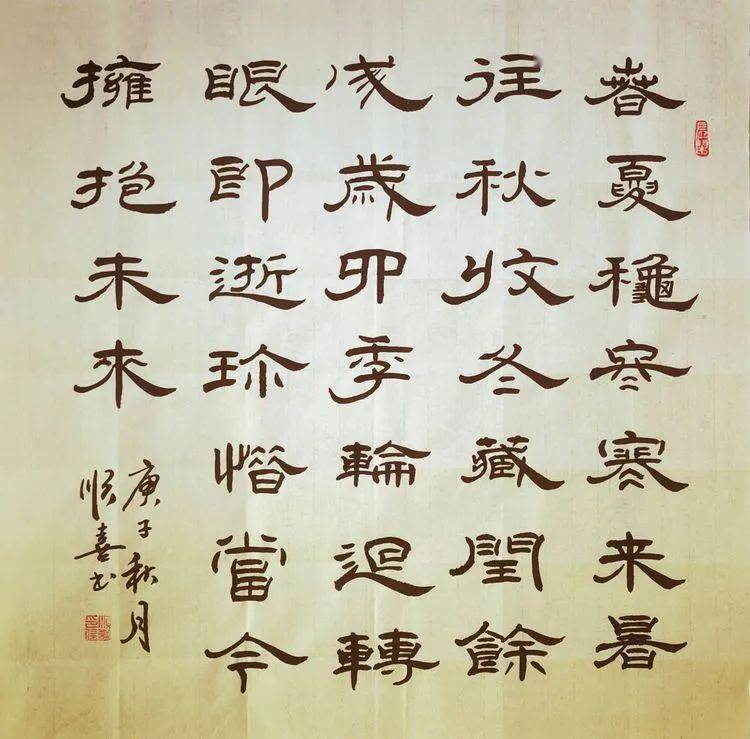 春夏穐冬寒来暑
往秋收冬藏閏餘
成歲四季輪迴轉
眼即逝珍惜當今
擁抱未來
庚子秋月
順喜书